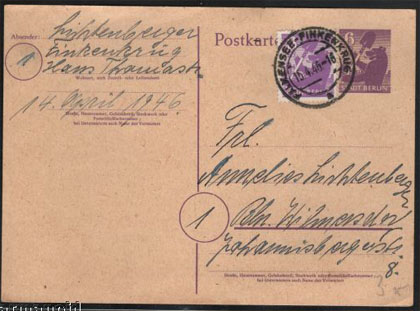 Absender:
Lichtenberger
Finkenkrug
Hans Thomastr.
Wohnort, auch Zustell- oder Leitpostamt
1
14. April 1946
Straße, Hausnummer, Gebäudeteil, Stockwerk oder
Postschließfachnummer;
bei Untermietern auch Name des Vermieters
Postkarte
6
STADT BERLIN
FALKENSEE-FINKENKRUG
15.4.46.-16
Frl.
Annelies Lichtenberger
1
Bln. Wilmersdorf
Johannisbergerstr.
8.
Straße, Hausnummer, Gebäudeteil, Stockwerk oder Postschließfachnummer;
bei Untermietern auch Name des Vermieters